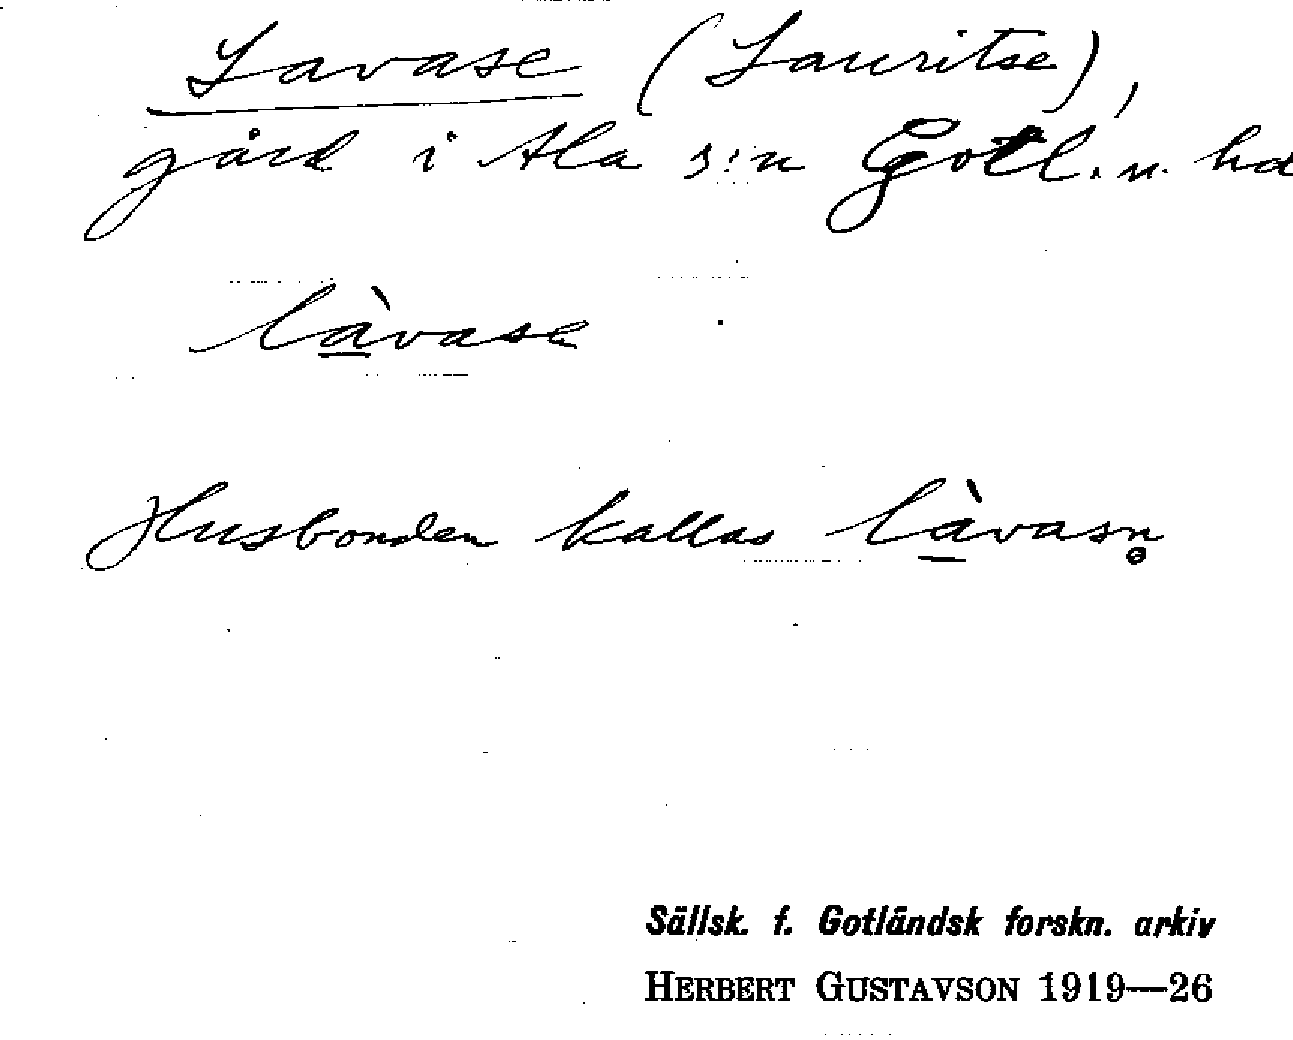 Lavase (Lauritse),
gård i Ala s:n Gotl. n. hd
là̱vase
Husbonden kallas là̱vasn̥
Sällsk. f. Gotländsk forskn. arkiv
HERBERT GUSTAVSON 1919—26